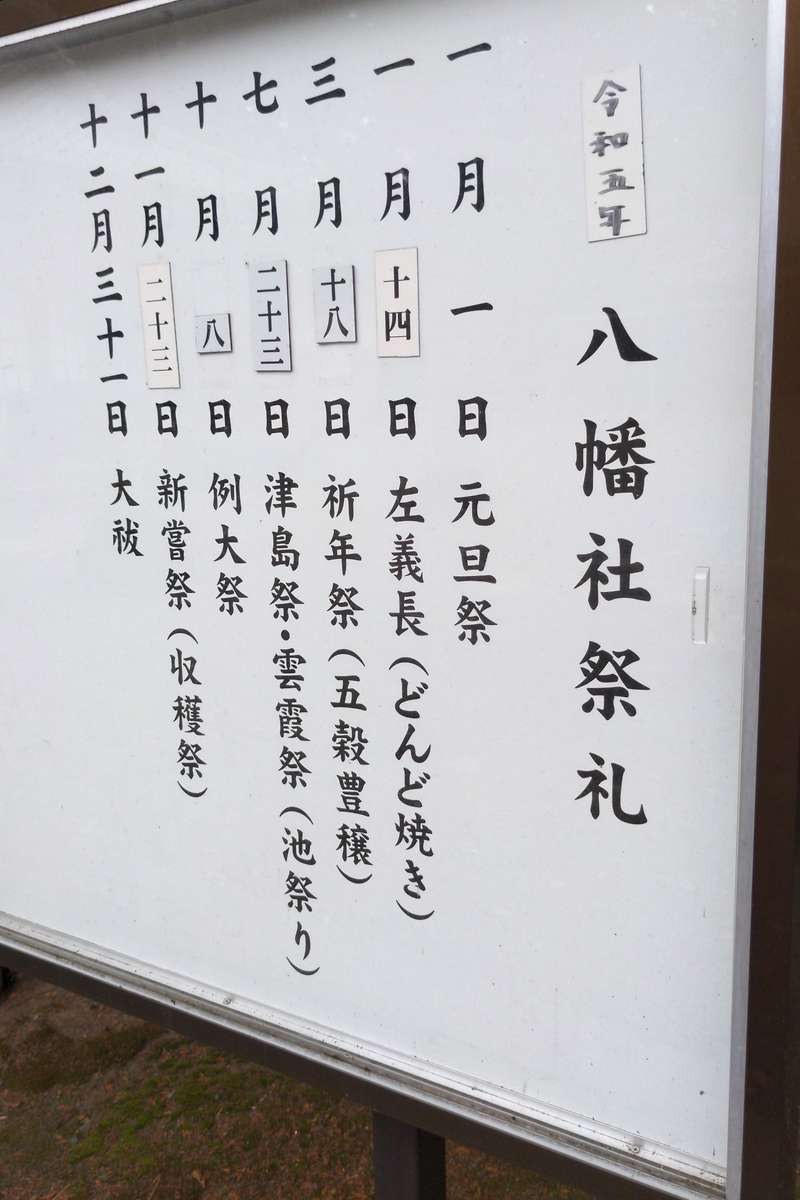 令和五年
八幡社祭礼
一月一日元旦祭
一月十四日左義長(どんど焼き)
三月十八日祈年祭(五穀豊穣)
七月二十三日津島祭・雲霞祭(池祭り)
十月八日例大祭
十一月二十三日新嘗祭(収穫祭)
十二月三十一日大祓